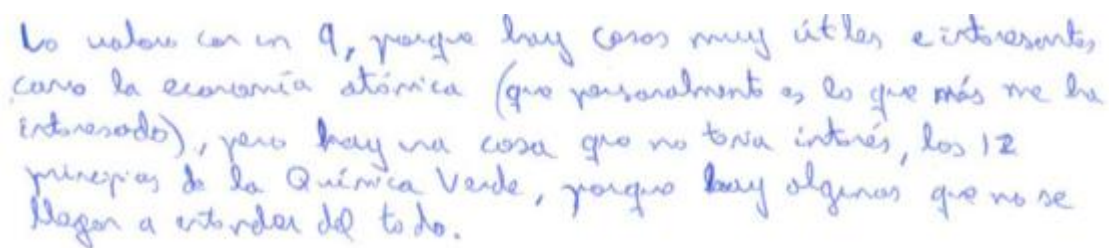 Lo valoro con un 9, porque hay cosas muy útiles e interesantes,
como la economía atómica (que personalmente es lo que más me ha
interesado), pero hay una cosa que no tenía interés, los 12
principios de la Química Verde, porque hay algunos que no se
llegan a entender del todo.